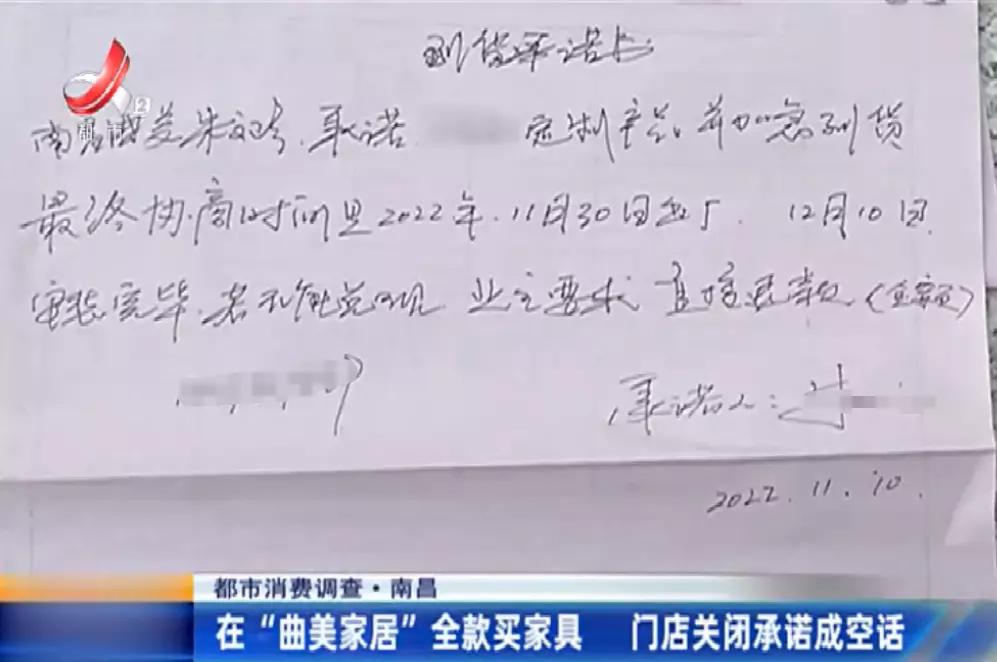 到货承诺书
2
都市
承诺 定制产品并加急到货
最终协商时间是2022年.11月30日出厂. 12月10日.
安装完毕.若不能兑现 业主要求直接退款(全额)
承诺人:
2022.11.10.
都市消费调查·南昌
在“曲美家居”全款买家具 门店关闭承诺成空话